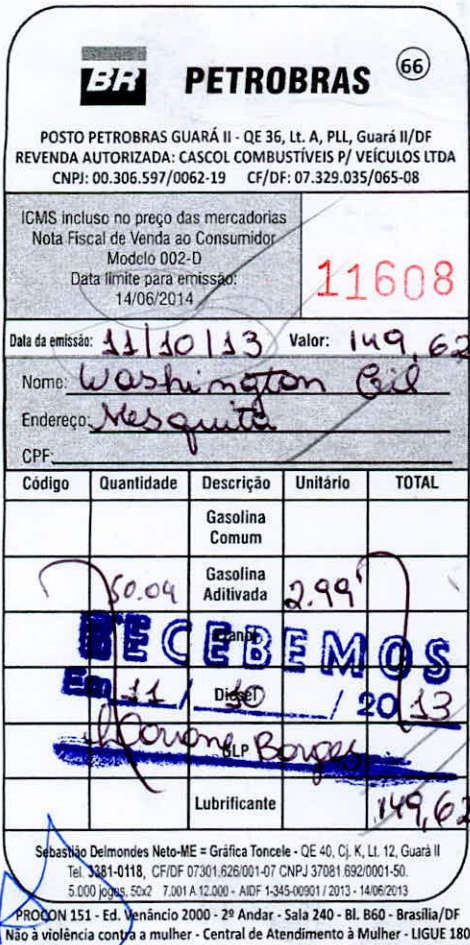 BR PETROBRAS 66
POSTO PETROBRAS GUARÁ II - QE 36, Lt. A, PLL, Guará II/DF
REVENDA AUTORIZADA: CASCOL COMBUSTÍVEIS P/ VEÍCULOS LTDA
CNPJ: 00.306.597/0062-19 CF/DF: 07.329.035/065-08
ICMS incluso no preço das mercadorias
Nota Fiscal de Venda ao Consumidor
Modelo 002-D
Data limite para emissão:
14/06/2014
11608
Data da emissão: 11/10/13 Valor: 149,62
Nome: Washington Gil
Endereço: Mesquita
CPF:
Código Quantidade Descrição Unitário TOTAL
Gasolina
Comum
50.04 Gasolina
Aditivada 2.99
Etanol
RECEBEMOS
Em 11 / 10 / 2013
Diesel
GLP
Borges
Lubrificante 149,62
Sebastião Delmondes Neto-ME = Gráfica Toncele - QE 40, Cj. K, Lt. 12, Guará II
Tel. 3381-0118, CF/DF 07301.626/001-07 CNPJ 37081.692/0001-50.
5.000 jogos, 50x2 7.001 A 12.000 - AIDF 1-345-00901 / 2013 - 14/06/2013
PROCON 151 - Ed. Venâncio 2000 - 2º Andar - Sala 240 - Bl. B60 - Brasília/DF
Não à violência contra a mulher - Central de Atendimento à Mulher - LIGUE 180